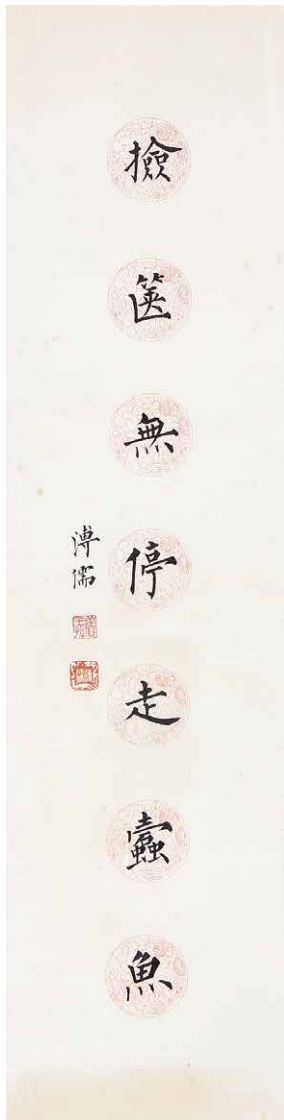 撿篋無停走蠹魚
溥儒